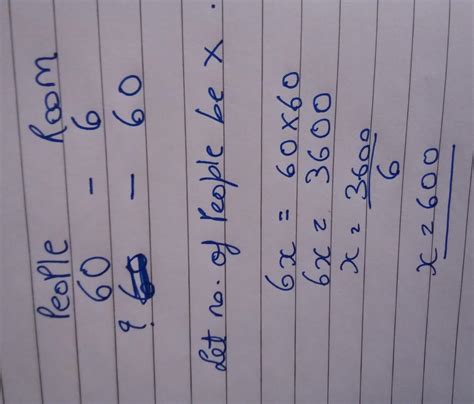 People Room
60 - 6
? - 60
Let no. of People be x.
6x = 60x60
6x = 3600
x = 3600
6
x = 600